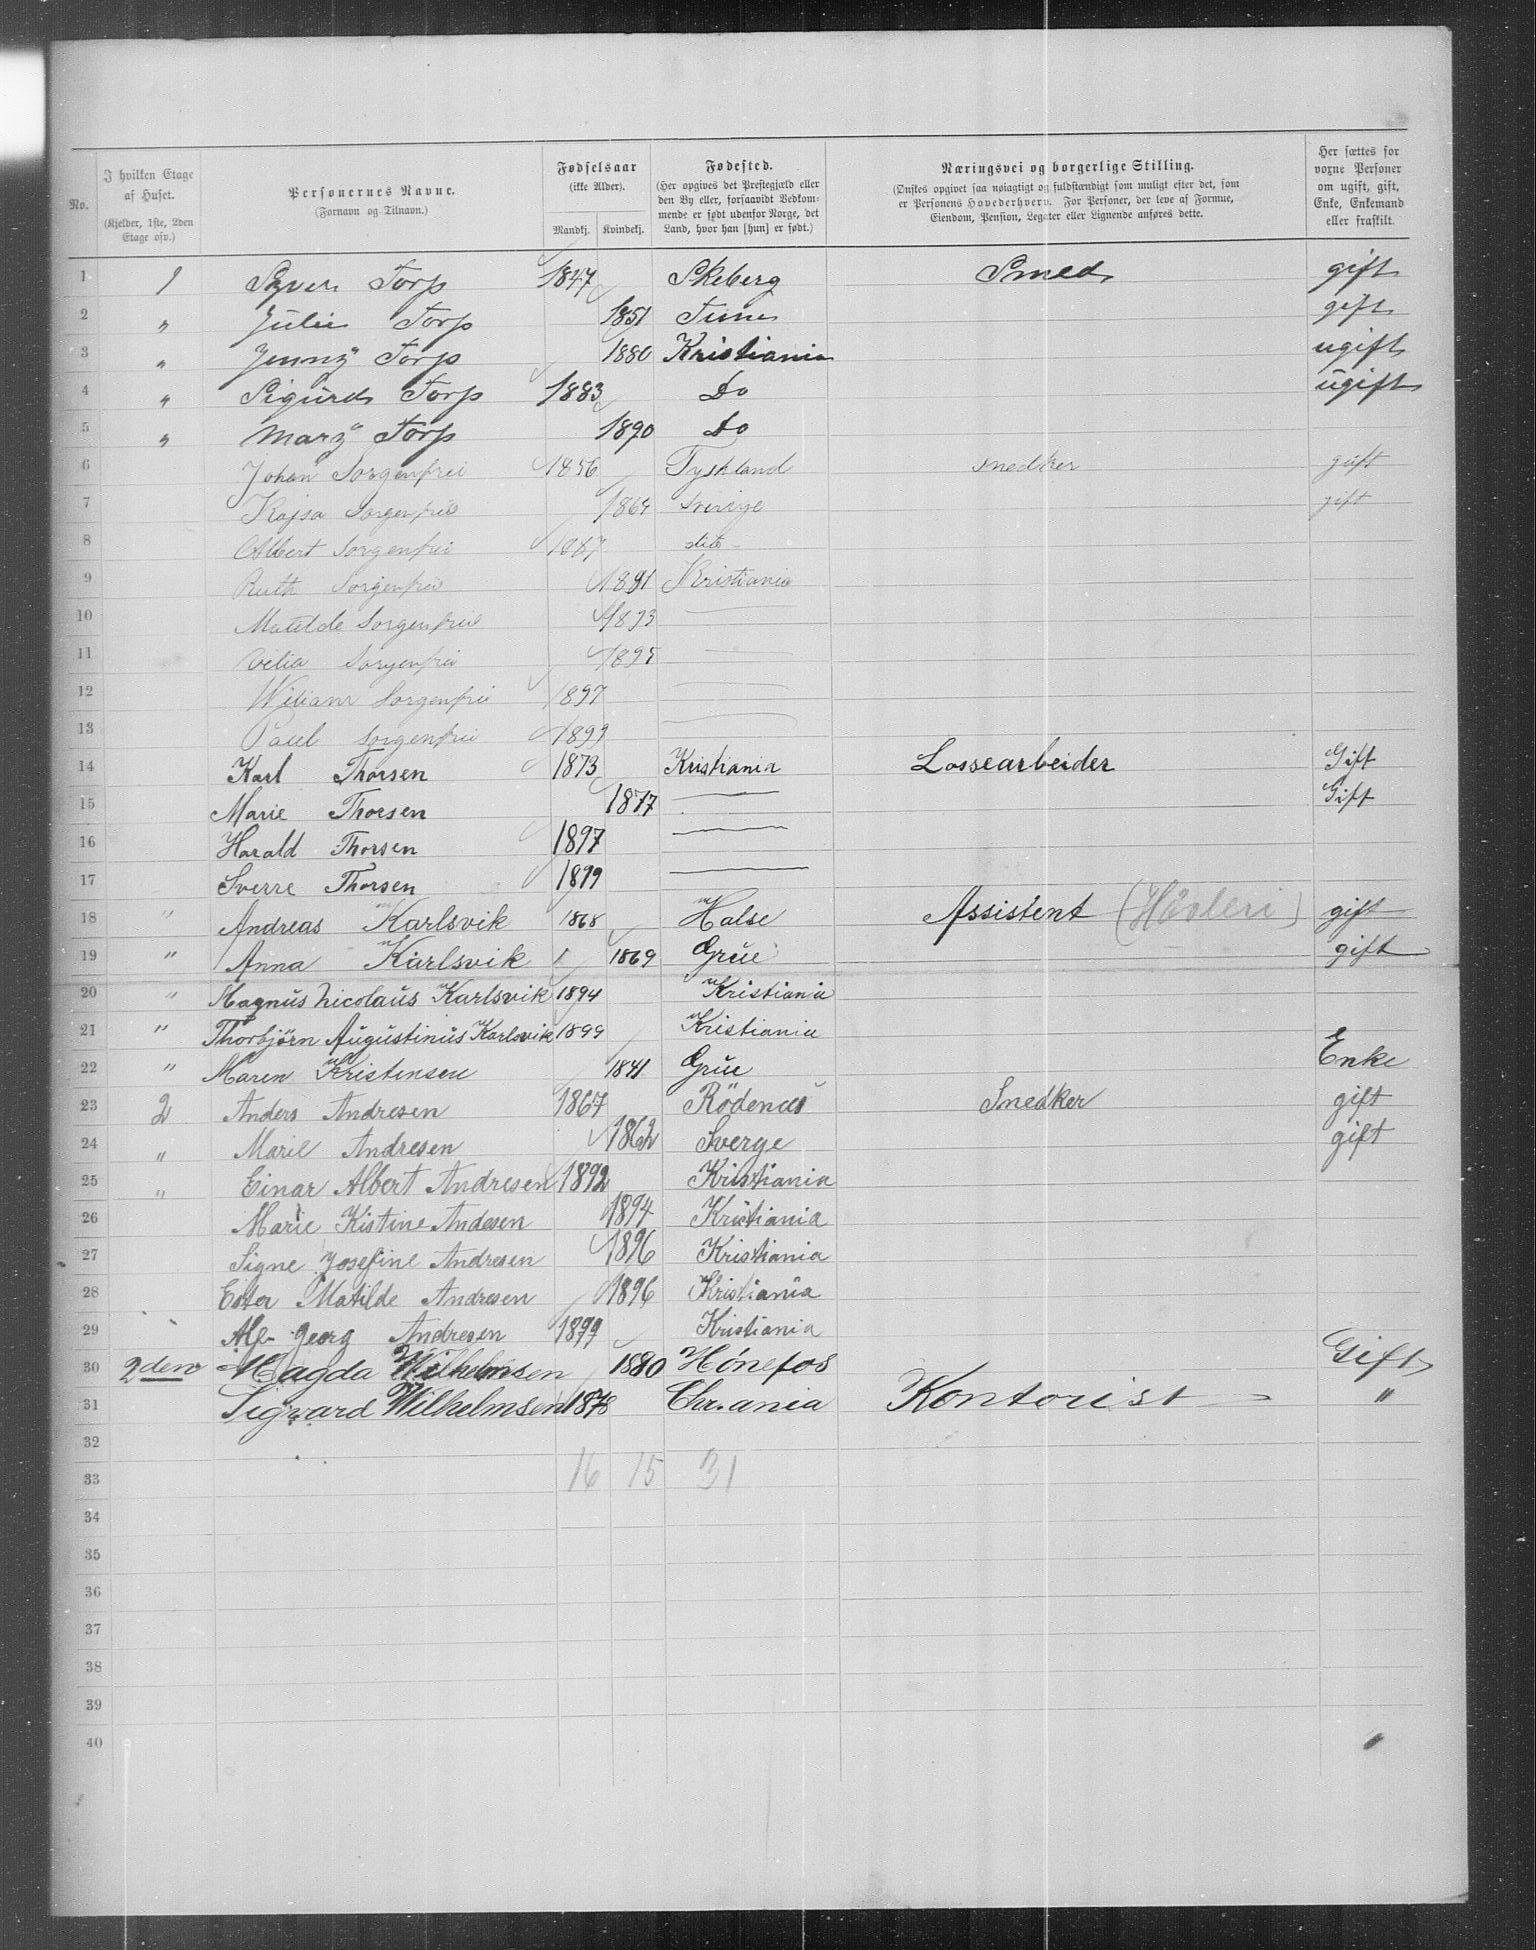 No. I hvilken Etage af Huset. (Kjelder, 1ste, 2den Etage osv.) Personernes Navne. (Fornavn og Tilnavn.) Fødselsaar (ikke Alder). Mandkj. Kvindekj. Fødested. (Her opgives det Prestegjæld eller den By eller, forsaavidt Vedkommende er født udenfor Norge, det Land, hvor han [hun] er født.) Næringsvei og borgerlige Stilling. (Ønskes opgivet saa nøiagtigt og fuldstændigt som muligt efter det, som er Personens Hovederhverv. For Personer, der leve af Formue, Eiendom, Pension, Legater eller Lignende anføres dette. Her sættes for voxne Personer om ugift, gift, Enke, Enkemand eller fraskilt.
1 1 Syver Torp 1847 Skeberg Smed gift
2 " Julie Torp 1851 Tune gift
3 " Jenny Torp 1880 Kristiania ugift
4 " Sigurd Torp 1883 Do ugift
5 " Mary Torp 1890 Do
6 Johan Sorgenfrei 1856 Tyskland snedker gift
7 Kajsa Sorgenfrei 1864 Sverige gift
8 Albert Sorgenfrei 1887 dito
9 Ruth Sorgenfrei 1891 Kristiania
10 Matilde Sorgenfrei 1893 —
11 Sorgenfrei 1895 —
12 Wiliam Sorgenfrei 1897 —
13 Paul Sorgenfrei 1899 —
14 Karl Thorsen 1873 Kristiania Lossearbeider Gift
15 Marie Thorsen 1877 — Gift
16 Harald Thorsen 1897 —
17 Sverre Thorsen 1899 —
18 " Andreas Karlsvik 1868 Halse Assistent (Høvleri) gift
19 " Anna Karlsvik 1869 Grue gift
20 " Magnus Nicolaus Karlsvik 1894 Kristiania
21 " Thorbjörn Augustinus Karlsvik 1899 Kristiania
22 " Maren Kristensen 1841 Grue Enke
23 2 Anders Andresen 1867 Rödenes Snedker gift
24 " Marie Andresen 1862 Sverge gift
25 " Einar Albert Andresen 1892 Kristiania
26 Marie Kistine Andesen 1894 Kristiania
27 Signe Josefine Andresen 1896 Kristiania
28 Ester Matilde Andresen 1896 Kristiania
29 Alf Georg Andresen 1899 Kristiania
30 2den Magda Wilhelmsen 1880 Hönefos Gift
31 Sigvard Wilhelmsen 1878 Chr.ania Kontorist "
32
33 16 15 31
34
35
36
37
38
39
40